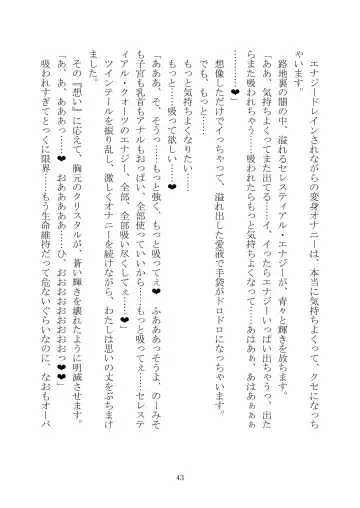 エナジードレインされながらの変身オナニーは、本当に気持ちよくって、クセになっち
ゃいます。
路地裏の闇の中、溢れるセレスティアル・エナジーが、青々と輝きを放ちます。
「ああ、気持ちよくってまた出てる……イ、イったらエナジーいっぱい出ちゃうっ、出た
らまた吸われちゃう……吸われたらもっと気持ちよくなって……あはあぁ、あはあぁぁぁ
………❤」
想像しただけでイっちゃって、溢れ出した愛液で手袋がドロドロになっちゃいます。
でも、もっと……
もっと気持ちよくなりたい……
もっと……吸って欲しい……❤
「あああ、そ、そうっ……もっと強く、もっと吸ってぇ❤ ふあああっそうよ、のーみそ
も子宮も乳首もアナルもおっぱい、全部、全部使っていいから……もっと吸ってぇ……セレステ
ィアル・クォーツのエナジー、全部、全部吸い尽くしてぇ……❤」
ツインテールを振り乱し、激しくオナニーを続けながら、わたしは思いの丈をぶちまけ
ました。
その『想い』に応えて、胸元のクリスタルが、蒼い輝きを壊れたように明滅させます。
「あ、あ、あああっ……❤ おああああ……ひ、おおおおおおおおおっ❤❤」
吸われすぎてとっくに限界……もう生命維持だって危ないぐらいなのに、なおもオーバ
43